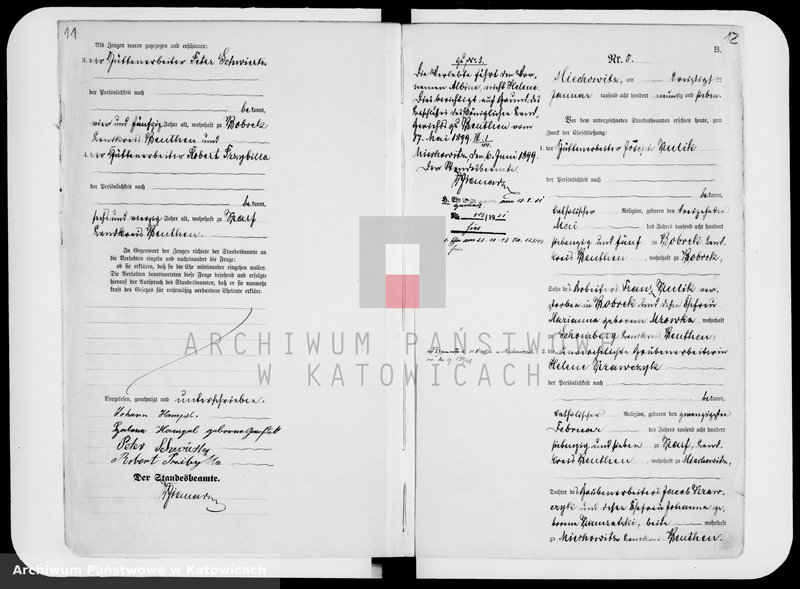 11
Als Zeugen waren zugezogen und erschienen:
3. der Hüttenarbeiter Peter Schwiertz
der Persönlichkeit nach
bekannt,
vier und fünfzig Jahre alt, wohnhaft zu Bobrek
Landkreis Beuthen und
4. der Hüttenarbeiter Robert Przybilla
der Persönlichkeit nach
bekannt,
sechs und vierzig Jahre alt, wohnhaft zu Karf
Landkreis Beuthen.
In Gegenwart der Zeugen richtete der Standesbeamte an
die Verlobten einzeln und nacheinander die Frage:
ob sie erklären, daß sie die Ehe miteinander eingehen wollen.
Die Verlobten beantworteten diese Frage bejahend und erfolgte
hierauf der Ausspruch des Standesbeamten, daß er sie nunmehr
kraft des Gesetzes für rechtmäßig verbundene Eheleute erkläre.
Vorgelesen, genehmigt und unterschrieben.
Johann Hampel.
Hampel geborene
Peter Schwiertz
Robert
Der Standesbeamte.
12
B.
zu Nr. 5.
Die Verlobte führt den Vor-
namen Albine, nicht Helene.
Dies berichtigt auf Grund des
Beschlusses des Königlichen Land-
gerichts zu Beuthen vom
17. Mai 1899
Miechowitz, den 6. Juni 1899.
Der Standesbeamte
Nr. 5.
Miechowitz, am dreißigsten
Januar tausend acht hundert neunzig und sieben.
Vor dem unterzeichneten Standesbeamten erschienen heute, zum
Zweck der Eheschließung:
1. der Hüttenarbeiter Joseph
der Persönlichkeit nach
bekannt,
katholischer Religion, geboren den dreizehnten
Mai des Jahres tausend acht hundert
siebenzig und fünf zu Bobrek Land-
kreis Beuthen, wohnhaft zu Bobrek,
Sohn des Arbeiters Franz ver-
storben zu Bobrek und dessen Ehefrau
Marianna geborene Mrowka wohnhaft
zu Schomberg Landkreis Beuthen;
2. die Grubenarbeiterin
Helene Krawczyk
der Persönlichkeit nach
bekannt,
katholischer Religion, geboren den zwanzigsten
Februar des Jahres tausend acht hundert
siebenzig und sieben zu Karf, Land-
kreis Beuthen, wohnhaft zu Miechowitz,
Tochter des Grubenarbeiters Jacob Kraw-
czyk und dessen Ehefrau Johanna ge-
borene beide wohnhaft
zu Miechowitz Landkreis Beuthen.
ARCHIWUM PAŃSTWOWE
W KATOWICACH
Archiwum Państwowe w Katowicach